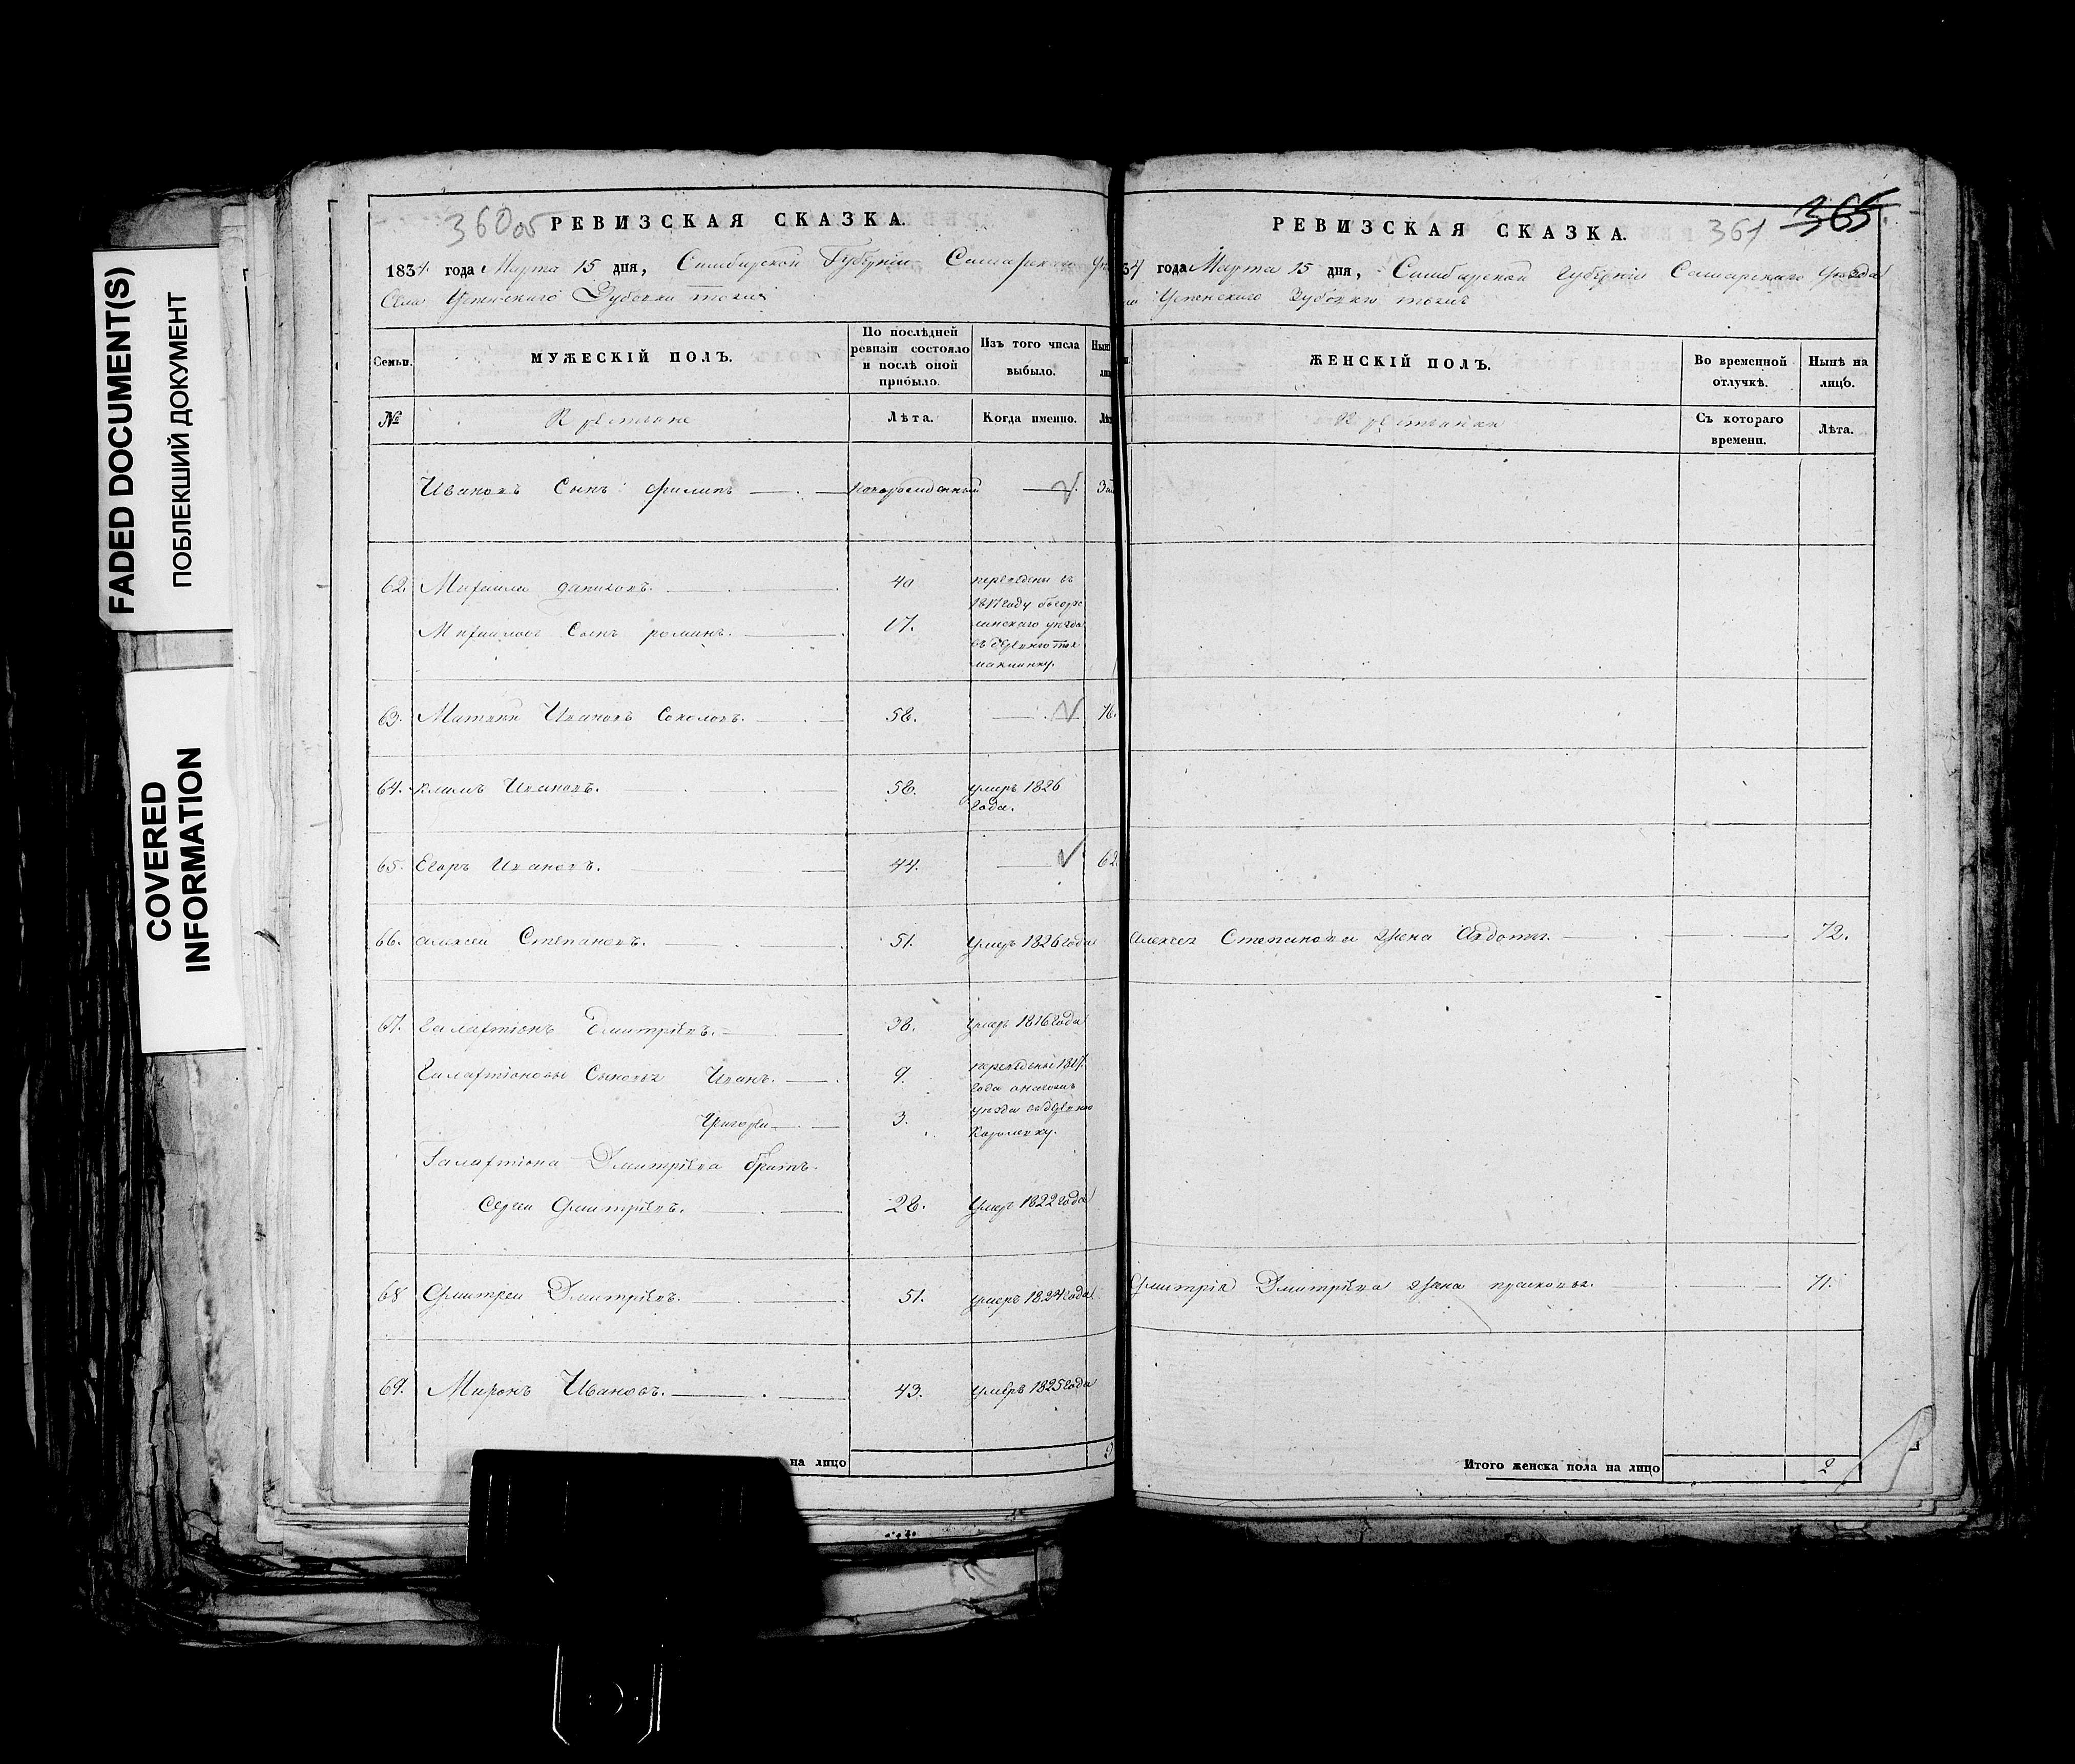 FADED DOCUMENT(S)
ПОБЛЕКШИЙ ДОКУМЕНТ
COVERED
INFORMATION
360об
РЕВИЗСКАЯ СКАЗКА.
1834. года Марта 15 дня, Симбирской Губерніи
Села Успенскаго
Семьи.
МУЖЕСКІЙ ПОЛЪ.
По послѣдней
ревизіи состояло
и послѣ оной
прибыло.
Изъ того числа
выбыло.
№
Крестьяне
Лѣта.
Когда именно.
Ивановъ Сынъ Филипъ новорожденный
62. Михаила даниловъ. 40 переведены въ
1817 году
Михаиловъ Сынъ романъ. 17. уезда
въ деревню
63. Матвеи Ивановъ Соколовъ. 58. 76.
64. климъ Ивановъ. 58. умеръ 1826
года.
65. Егоръ Ивановъ. 44. 62.
66. алексеи Степановъ. 51. умеръ 1826 года
67. Галахтіонъ Дмитріевъ. 38. умеръ 1816 года
Галахтіоновы Сыновья Иванъ. 9. переведены 1817.
года
Григореи 3. уезда въ деревню
Галахтіона Дмитріева братъ.
Сергеи Дмитріевъ. 28. умеръ 1822 года
68 Дмитреи Дмитріевъ. 51. умеръ 1824 года
69. Миронъ Ивановъ. 43. умеръ 1825 года
на лицо
РЕВИЗСКАЯ СКАЗКА.
361
365.
34 года Марта 15 дня, Симбирской губерніи Самарскаго уезда
Успенскаго
ЖЕНСКІЙ ПОЛЪ.
Во временной
отлучкѣ.
Нынѣ на
лицо.
Крестьянки
Съ котораго
времени.
Лѣта.
Алексея Степанова жена Авдотья. 72.
Дмитрія Дмитріева жена прасковья. 71.
Итого женска пола на лицо 2